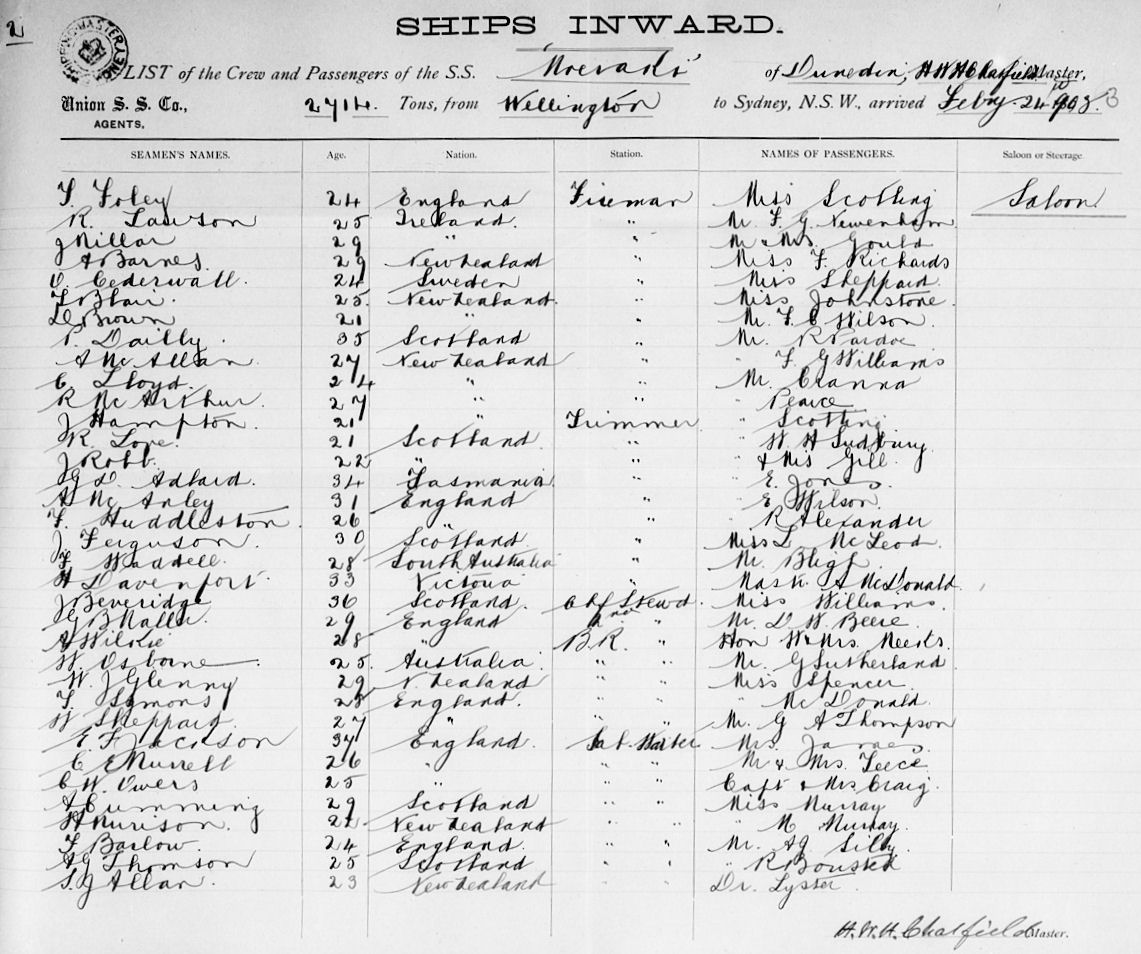 2
SHIPS INWARD.
LIST of the Crew and Passengers of the S.S. "Moeraki" of Dunedin, H W H Chatfield Master,
Union S. S. Co., 2714. Tons, from Wellington to Sydney, N.S.W., arrived Feby. 24 1903. 3
AGENTS,
SEAMEN'S NAMES. Age. Nation. Station. NAMES OF PASSENGERS. Saloon or Steerage
T. Foley 24 England Fireman Miss Scotting Saloon
R. Lawson 25 Ireland. " Mr. F. G. Newenham
J Millar 29 " " Mr & Mrs. Gould
A Barnes. 29 New Zealand " Miss F. Richards
O. Cederwall. 24 Sweden " Miss Sheppard.
T Blair. 25. New Zealand. " Miss Johnstone.
D Brown 21 " " Mr. F. C Wilson.
P. Dailly. 35 Scotland " Mr. R Pardoe
A Mc Allan. 27 New Zealand " " F. G Williams
C. Lloyd. 24 " " Mr. Cranna
R Mc Arthur. 27 " " " Pearce
J Hampton. 21 " Trimmer " Scotting
R. Love. 21 Scotland " " W H Sudbury
J Robb. 22 " " " & Mrs Gill.
G D. Adlard. 34 Tasmania " " E. Jones.
A Mc Anley 31 England " " E Wilson.
F. Huddleston 26 " " " R Alexander
J. Ferguson. 30 Scotland. " Miss L McLeod
F Waddell. 28 South Australia " Mr. Bligh.
H Davenport. 33 Victoria " Mast. A McDonald.
J Beveridge 36 Scotland. Chf Stewd. Miss Williams.
G B Naller 29 England 2nd " Mr. D W. Beere.
A Wilkie 28 " B.R. " Hon W & Mrs. Meeks.
W. Osborne. 25. Australia " " Mr. G Sutherland
W. J Glenny 29 N. Zealand " " Miss Spencer.
F. Symons 28 England. " " " Mc Donald.
W Sheppard. 27 " " " Mr. G A Thompson
E F Jackson 37 England. Sal. Waiter Mrs. James.
C E Murrell 26 " " " Mr & Mrs. Leece.
C W. Owers 25 " " " Capt & Mrs Craig.
A Cumming 29 Scotland " " Miss Murray
W Murison. 22 New Zealand " " " M Murray.
F Barlow. 24 England. " " Mr. AJ Silby
AG Thomson 25 Scotland " " " R Bousted
S.J Allan. 23 New Zealand " " Dr. Lyster.
H. W. H. Chatfield Master.